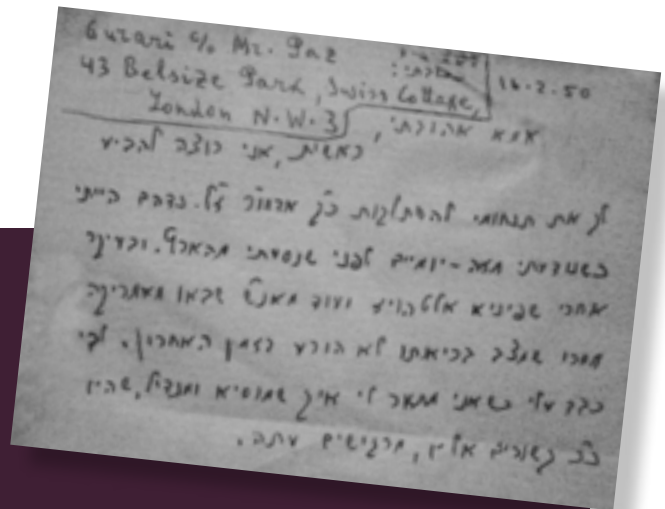 Gurari c/o Mr. Paz
43 Belsize Park, Swiss Cottage,
London N.W.3
16.2.50
אמא אהובתי,
ראשית, אני רוצה להביע
לך את תנחומי להסתלקות כ"ק אדמו"ר ז"ל. נדהם הייתי
כשנודעתי מזה - יומיים לפני שנסעתי מהארץ. ובעיקר
אחרי שפיניא אלטהויז ועוד מאנ"ש שבאו מאמריקה
מסרו שמצב בריאתו לא הורע בזמן האחרון. לבי
כבד עלי כשאני מתאר לי איך שמוסיא ומנדל, שהיו
כ"כ קשורים אליו, מרגישים עתה.